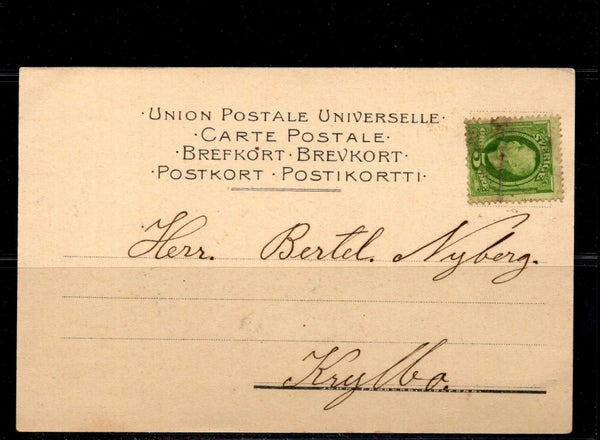 ·UNION POSTALE UNIVERSELLE·
·CARTE POSTALE·
·BREFKORT·BREVKORT·
·POSTKORT·POSTIKORTTI·
SVERIGE
5
Herr. Bertel. Nyberg.
Krylbo.